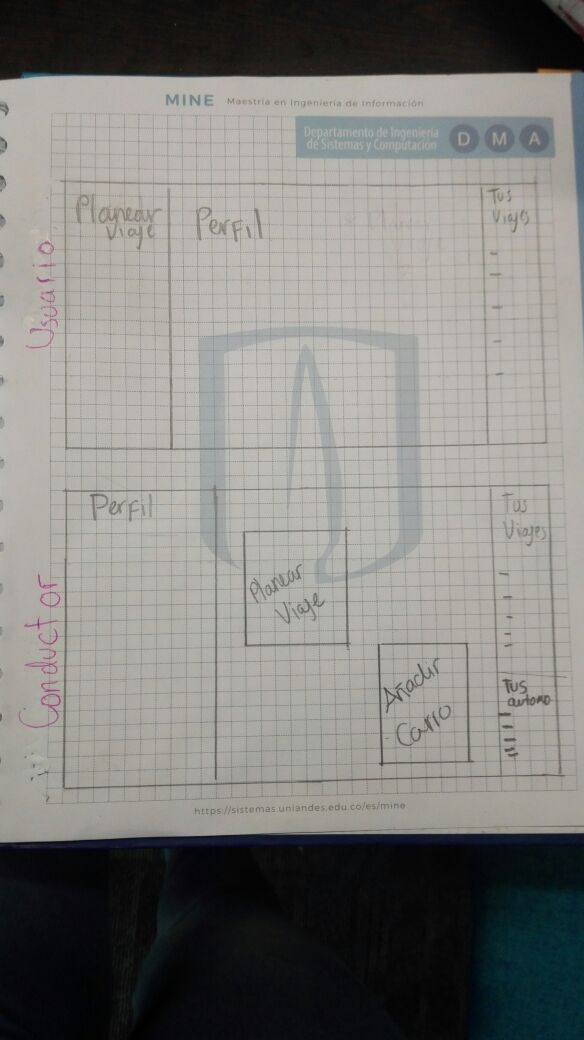 MINE Maestría en Ingeniería de Información
Departamento de Ingeniería
de Sistemas y Computación
D M A
Usuario
Planear
Viaje
Perfil
Tus
Viajes
Conductor
Perfil
Planear
Viaje
Añadir
Carro
Tus
Viajes
Tus
automo
https://sistemas.uniandes.edu.co/es/mine